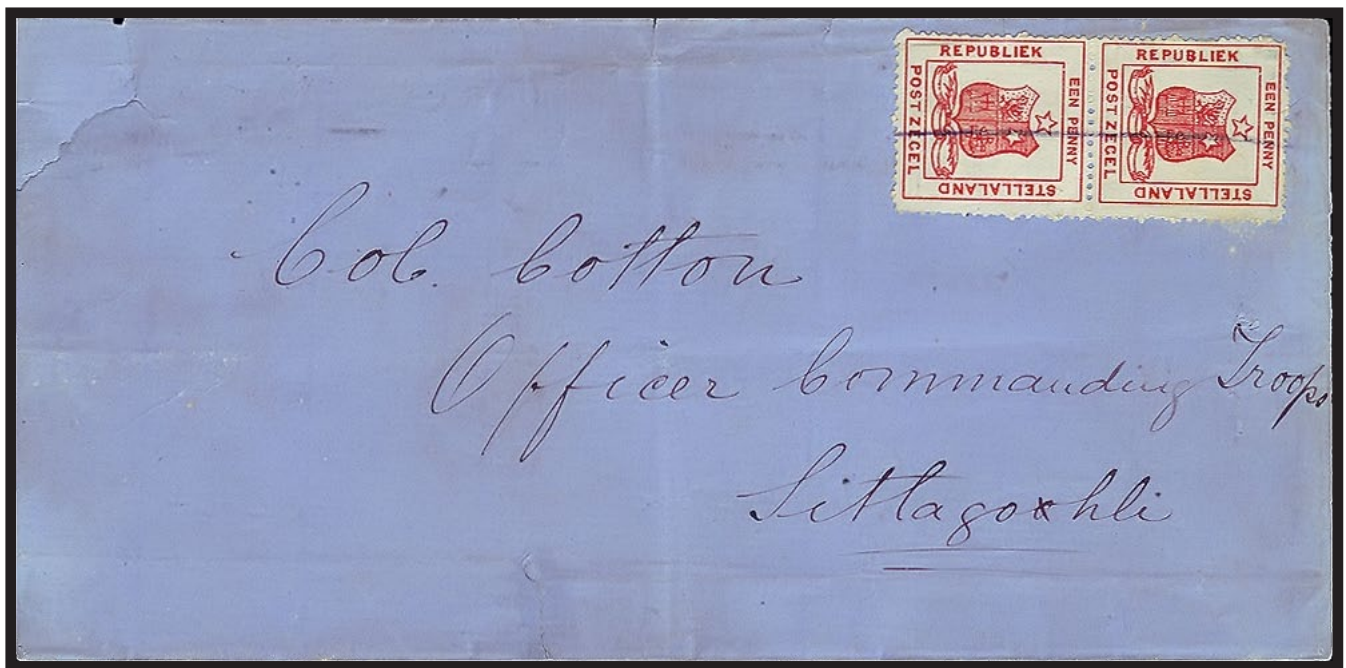 REPUBLIEK
POSTZEGEL
EEN PENNY
STELLALAND
REPUBLIEK
POSTZEGEL
EEN PENNY
STELLALAND
Col. Cotton
Officer Commanding Troops